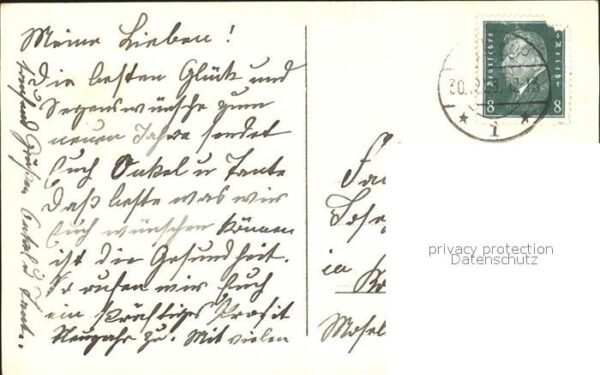 Meine Lieben!
Die besten Glück und
Segenswünsche zum
neuen Jahre sendet
Euch Onkel u Tante
Daß beste was wir
Euch wünschen können
ist die Gesundheit.
So rufen wir Euch
ein kräftiges Prosit
Neujahr zu. Mit vielen
Grüßen Onkel u Tante.
Deutsches Reich
8 8
30.12.
12-13
* 1 *
Fa
Jose
in
Mosel
privacy protection
Datenschutz